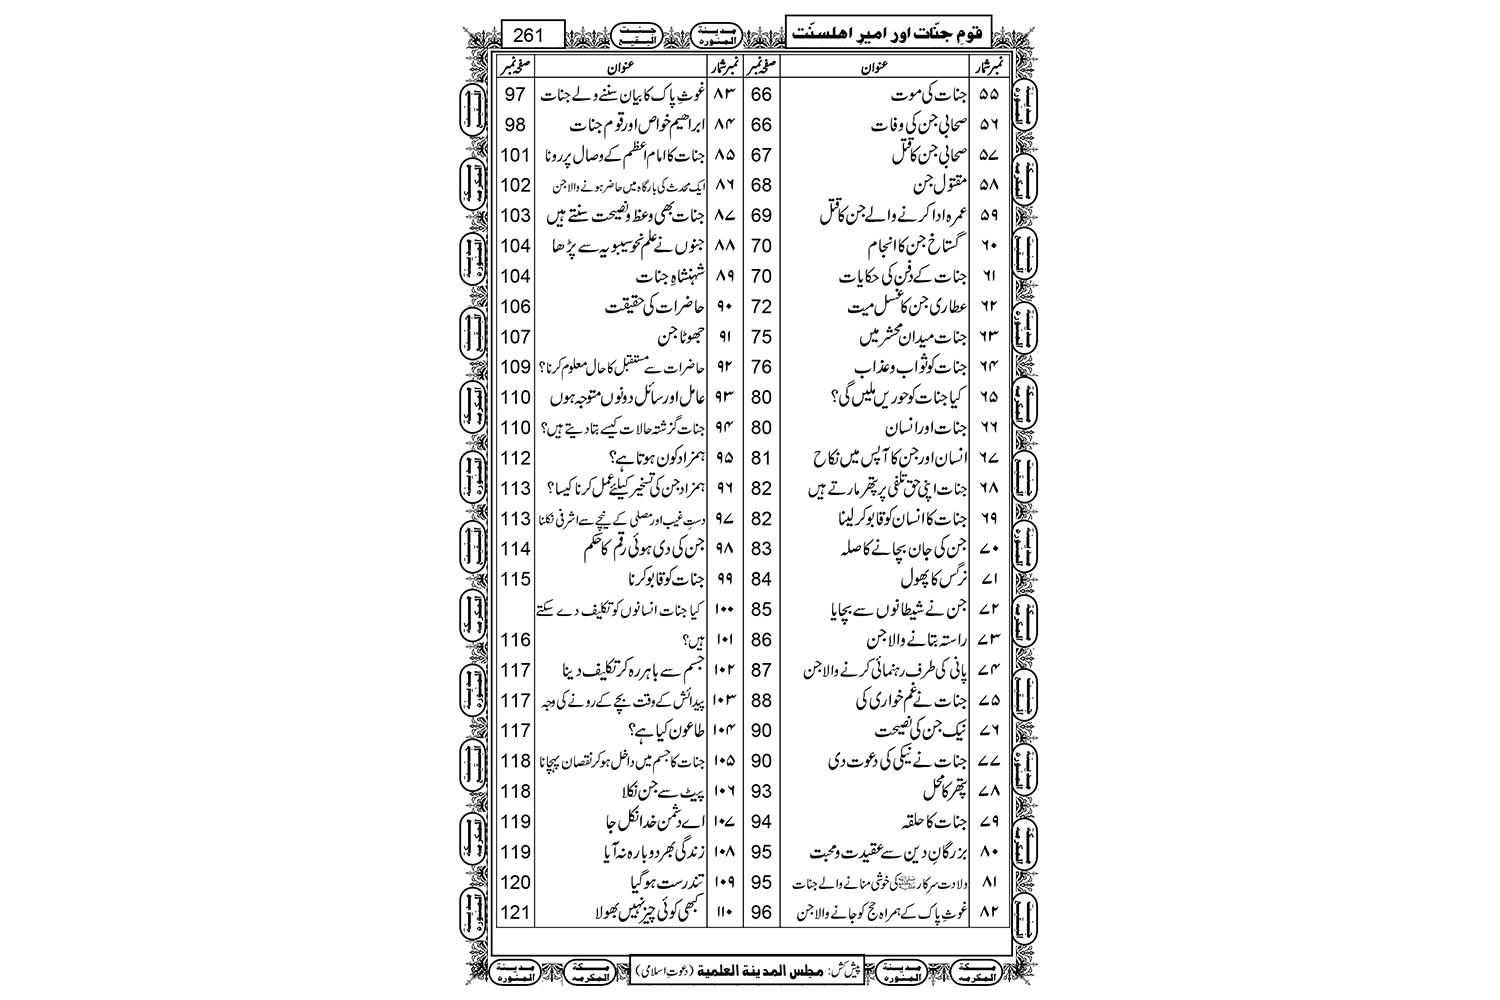 قومِ جنّات اور امیرِ اھلسنّت
261
نمبر شمار عنوان صفحہ نمبر نمبر شمار عنوان صفحہ نمبر
۵۵ جنات کی موت 66
۵۶ صحابی جن کی وفات 66
۵۷ صحابی جن کا قتل 67
۵۸ مقتول جن 68
۵۹ عمرہ ادا کرنے والے جن کا قتل 69
۶۰ گستاخ جن کا انجام 70
۶۱ جنات کے دفن کی حکایات 70
۶۲ عطاری جن کا غسل میت 72
۶۳ جنات میدان محشر میں 75
۶۴ جنات کو ثواب و عذاب 76
۶۵ کیا جنات کو حوریں ملیں گی؟ 80
۶۶ جنات اور انسان 80
۶۷ انسان اور جن کا آپس میں نکاح 81
۶۸ جنات اپنی حق تلفی پر پتھر مارتے ہیں 82
۶۹ جنات کا انسان کو قابو کر لینا 82
۷۰ جن کی جان بچانے کا صلہ 83
۷۱ نرگس کا پھول 84
۷۲ جن نے شیطانوں سے بچایا 85
۷۳ راستہ بتانے والا جن 86
۷۴ پانی کی طرف رہنمائی کرنے والا جن 87
۷۵ جنات نے غم خواری کی 88
۷۶ نیک جن کی نصیحت 90
۷۷ جنات نے نیکی کی دعوت دی 90
۷۸ پتھر کا محل 93
۷۹ جنات کا حلقہ 94
۸۰ بزرگانِ دین سے عقیدت و محبت 95
۸۱ ولادت سرکار ﷺ کی خوشی منانے والے جنات 95
۸۲ غوثِ پاک کے ہمراہ حج کو جانے والا جن 96
۸۳ غوثِ پاک کا بیان سننے والے جنات 97
۸۴ ابراھیم خواص اور قوم جنات 98
۸۵ جنات کا امام اعظم کے وصال پر رونا 101
۸۶ ایک محدث کی بارگاہ میں حاضر ہونے والا جن 102
۸۷ جنات بھی وعظ و نصیحت سنتے ہیں 103
۸۸ جنوں نے علم نحو سیبویہ سے پڑھا 104
۸۹ شہنشاہِ جنات 104
۹۰ حاضرات کی حقیقت 106
۹۱ جھوٹا جن 107
۹۲ حاضرات سے مستقبل کا حال معلوم کرنا؟ 109
۹۳ عامل اور سائل دونوں متوجہ ہوں 110
۹۴ جنات گزشتہ حالات کیسے بتا دیتے ہیں؟ 110
۹۵ ہمزاد کون ہوتا ہے؟ 112
۹۶ ہمزاد جن کی تسخیر کیلئے عمل کرنا کیسا؟ 113
۹۷ دستِ غیب اور مصلی کے نیچے سے اشرفی نکلنا 113
۹۸ جن کی دی ہوئی رقم کا حکم 114
۹۹ جنات کو قابو کرنا 115
۱۰۰ کیا جنات انسانوں کو تکلیف دے سکتے
۱۰۱ ہیں؟ 116
۱۰۲ جسم سے باہر رہ کر تکلیف دینا 117
۱۰۳ پیدائش کے وقت بچے کے رونے کی وجہ 117
۱۰۴ طاعون کیا ہے؟ 117
۱۰۵ جنات کا جسم میں داخل ہو کر نقصان پہچانا 118
۱۰۶ پیٹ سے جن نکلا 118
۱۰۷ اے دشمن خدا نکل جا 119
۱۰۸ زندگی بھر دوبارہ نہ آیا 119
۱۰۹ تندرست ہو گیا 120
۱۱۰ کبھی کوئی چیز نہیں بھولا 121
پیش کش: مجلس المدینة العلمیة (دعوتِ اسلامی)